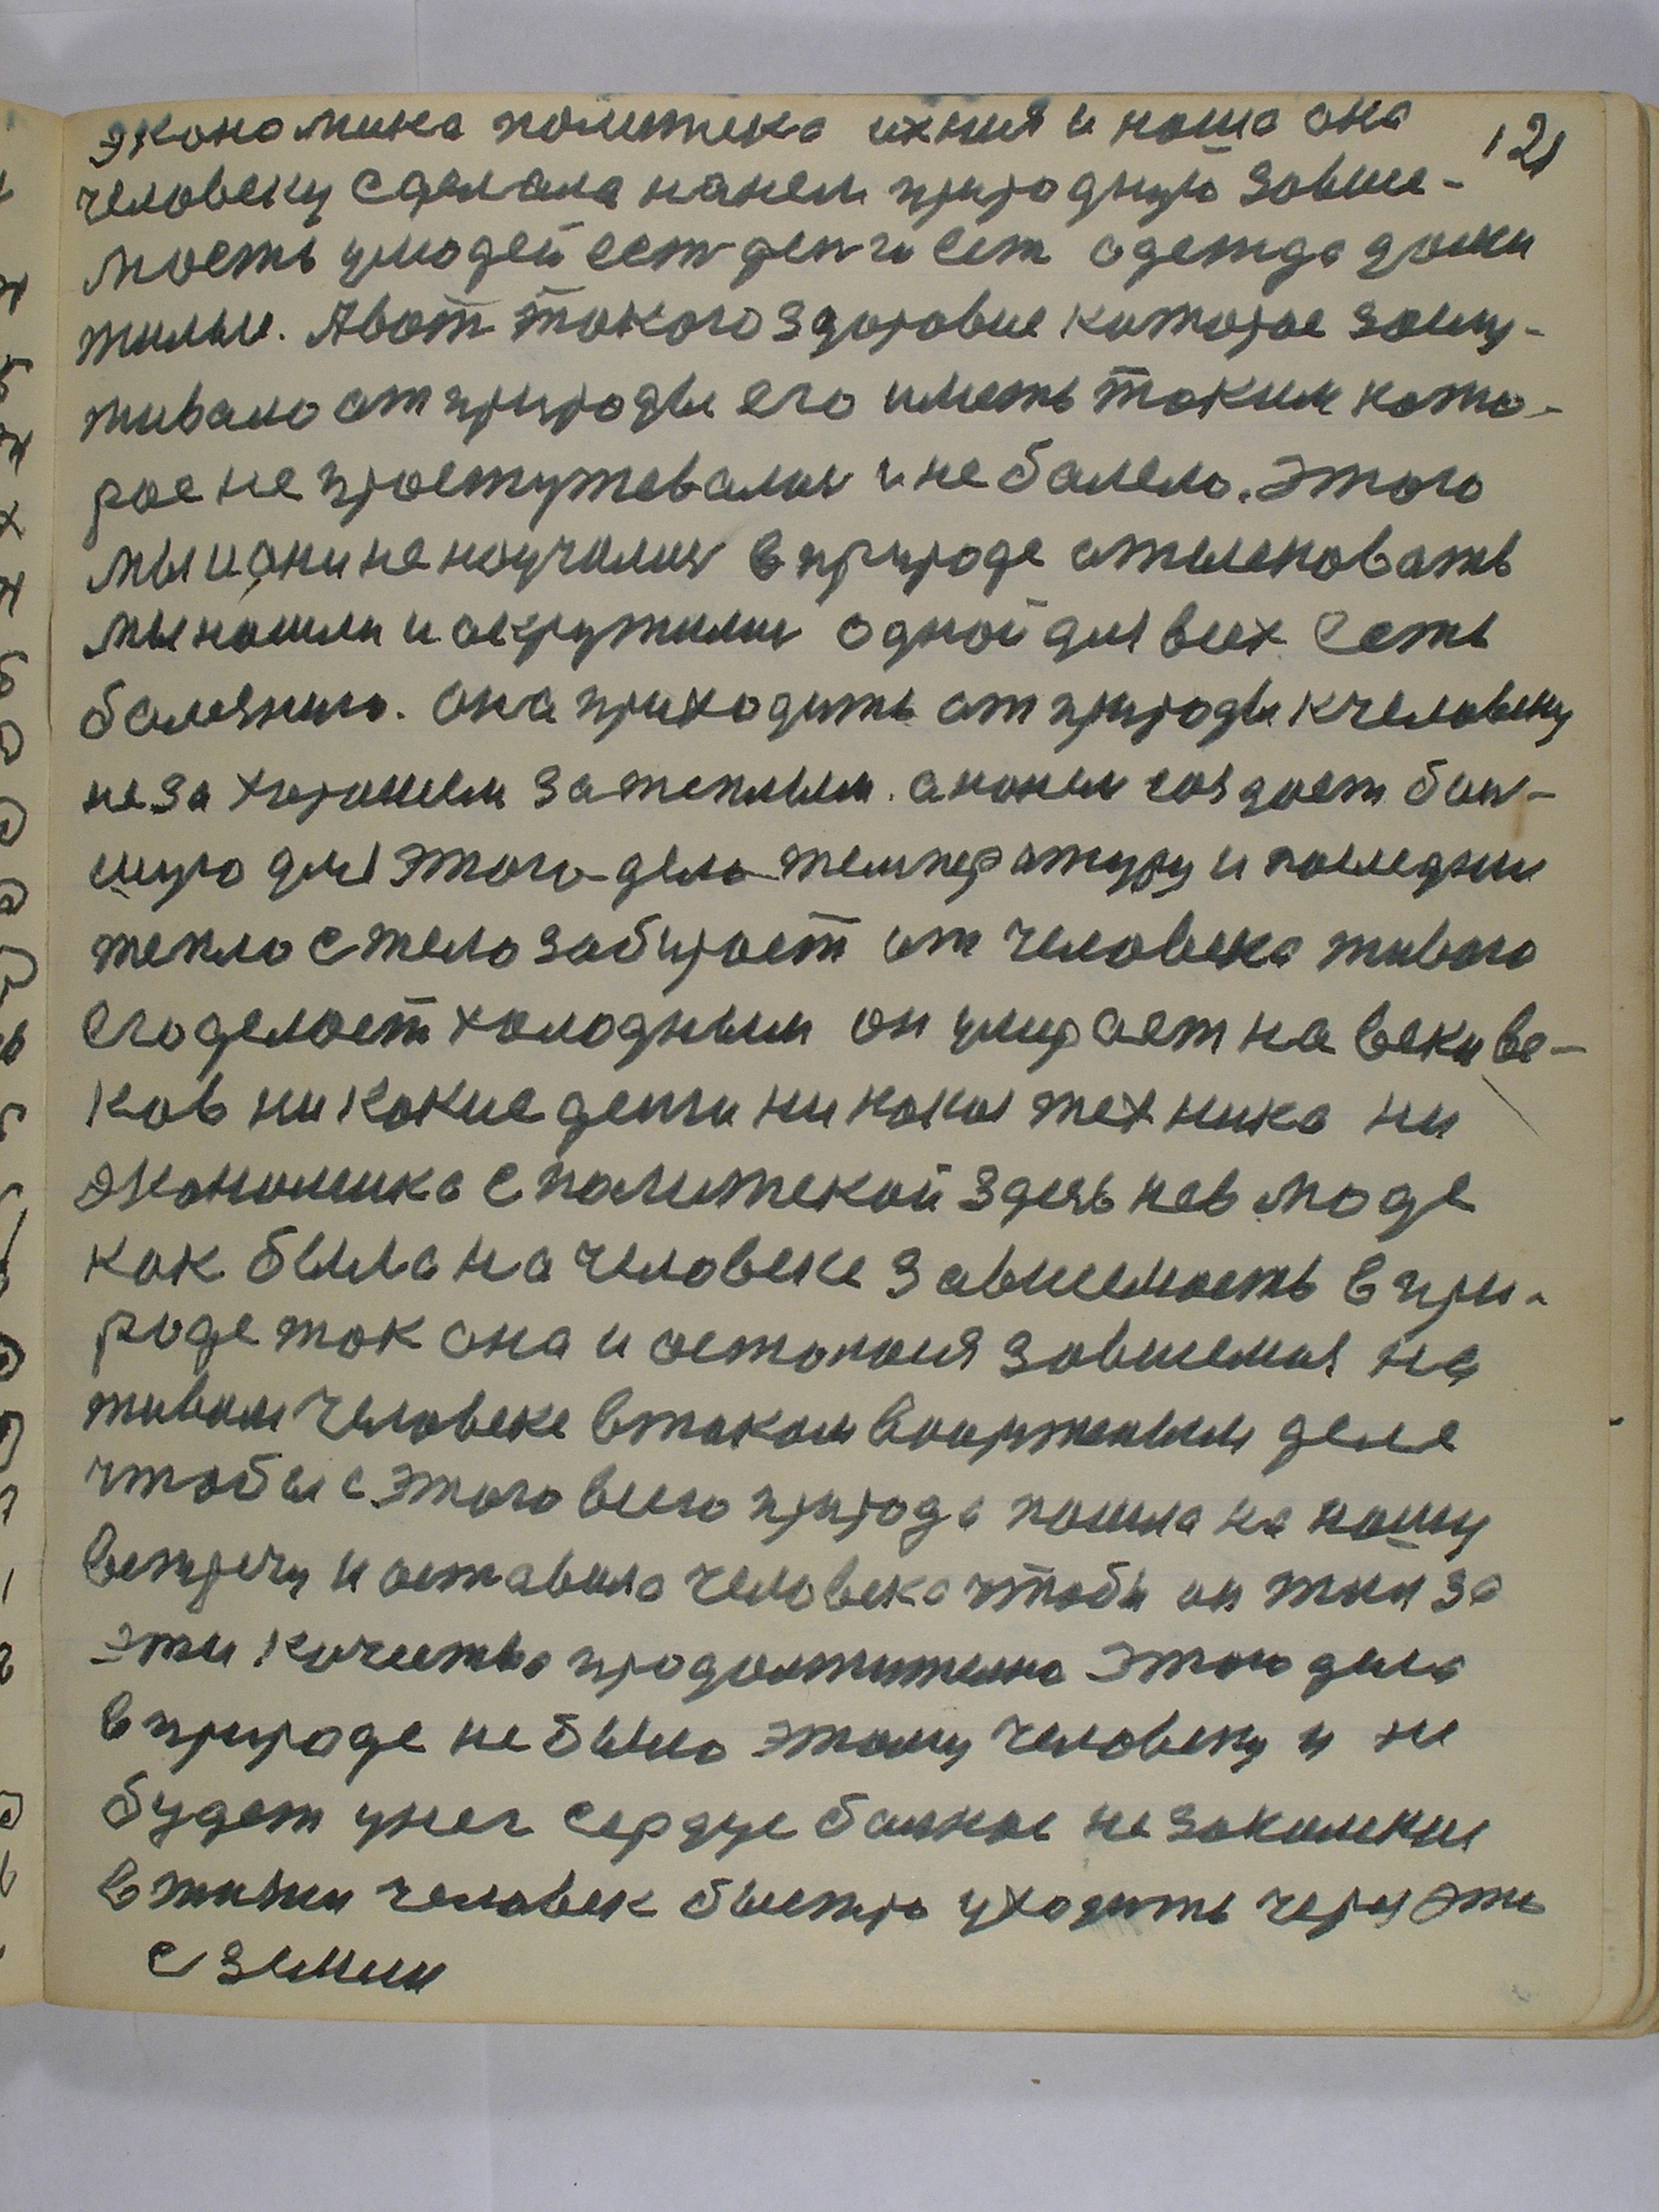 экономика политика ихния и наша она 121
человеку сделала нанем природную завше-
мость улюдей ест денги ест одежда доми
жильи. Авот такого здоровие каторае зашу-
живало от природы его иметь таким като-
рое не простужевалия и не балело. Этого
мы и они не научилия в природе
мы нашли и окружилии одной для всех есть
балезнию. она приходить от природы к человеку
не за хорошем за теплым. она нем создает бол-
шую для этого дела температуру и последнии
тепло с тело забирает от человека живого
его делает холодным он умирает на веки ве-
ков ни какие денги ни какая техника ни
экономика с политекой здесь нев моде
как была на человеке завшемость в при-
роде так она и осталася завшемая на
живом человеке в таком деле
чтобы с этого всего природа пошла на нашу
встречу и оставила человека чтобы он жил за
эти качества продолжително этого дела
в природе не было этому человеку и не
будет унег сердце балное не закаленое
в жизни человек быстро уходить через эта
с земли